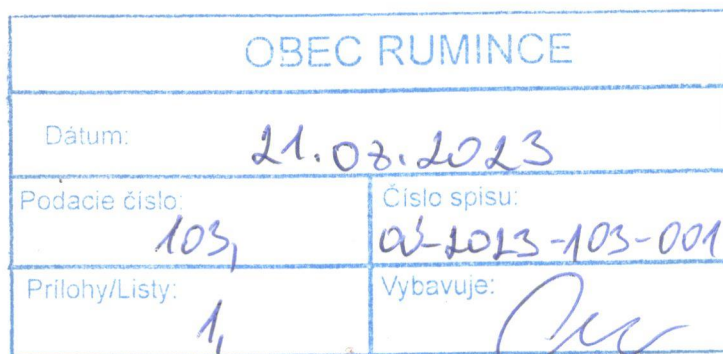 OBEC RUMINCE
Dátum: 21.08.2023
Podacie číslo: Číslo spisu:
103, OÚ-2023-103-001
Prílohy/Listy: Vybavuje:
1,